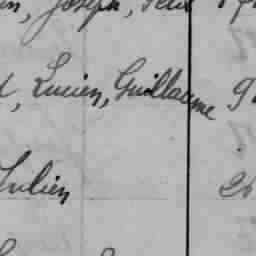 Joseph, Félix
, Lucien, Guillaume 9
Julien 26